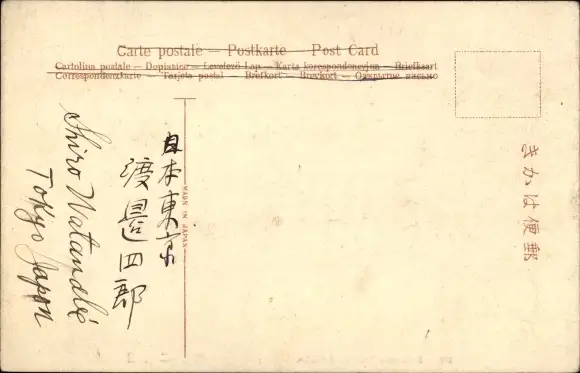 Carte postale — Postkarte — Post Card
Cartolina postale — Dopisnice — Levelező Lap — Karta korespondencyjna — Briefkaart
Correspondenzkarte — Tarjeta postal — Brefkort — Brevkort — Открытое письмо
きかは便郵
MADE IN JAPAN
日本東京
渡邊四郎
Shiro Watanabé
Tokyo Japan